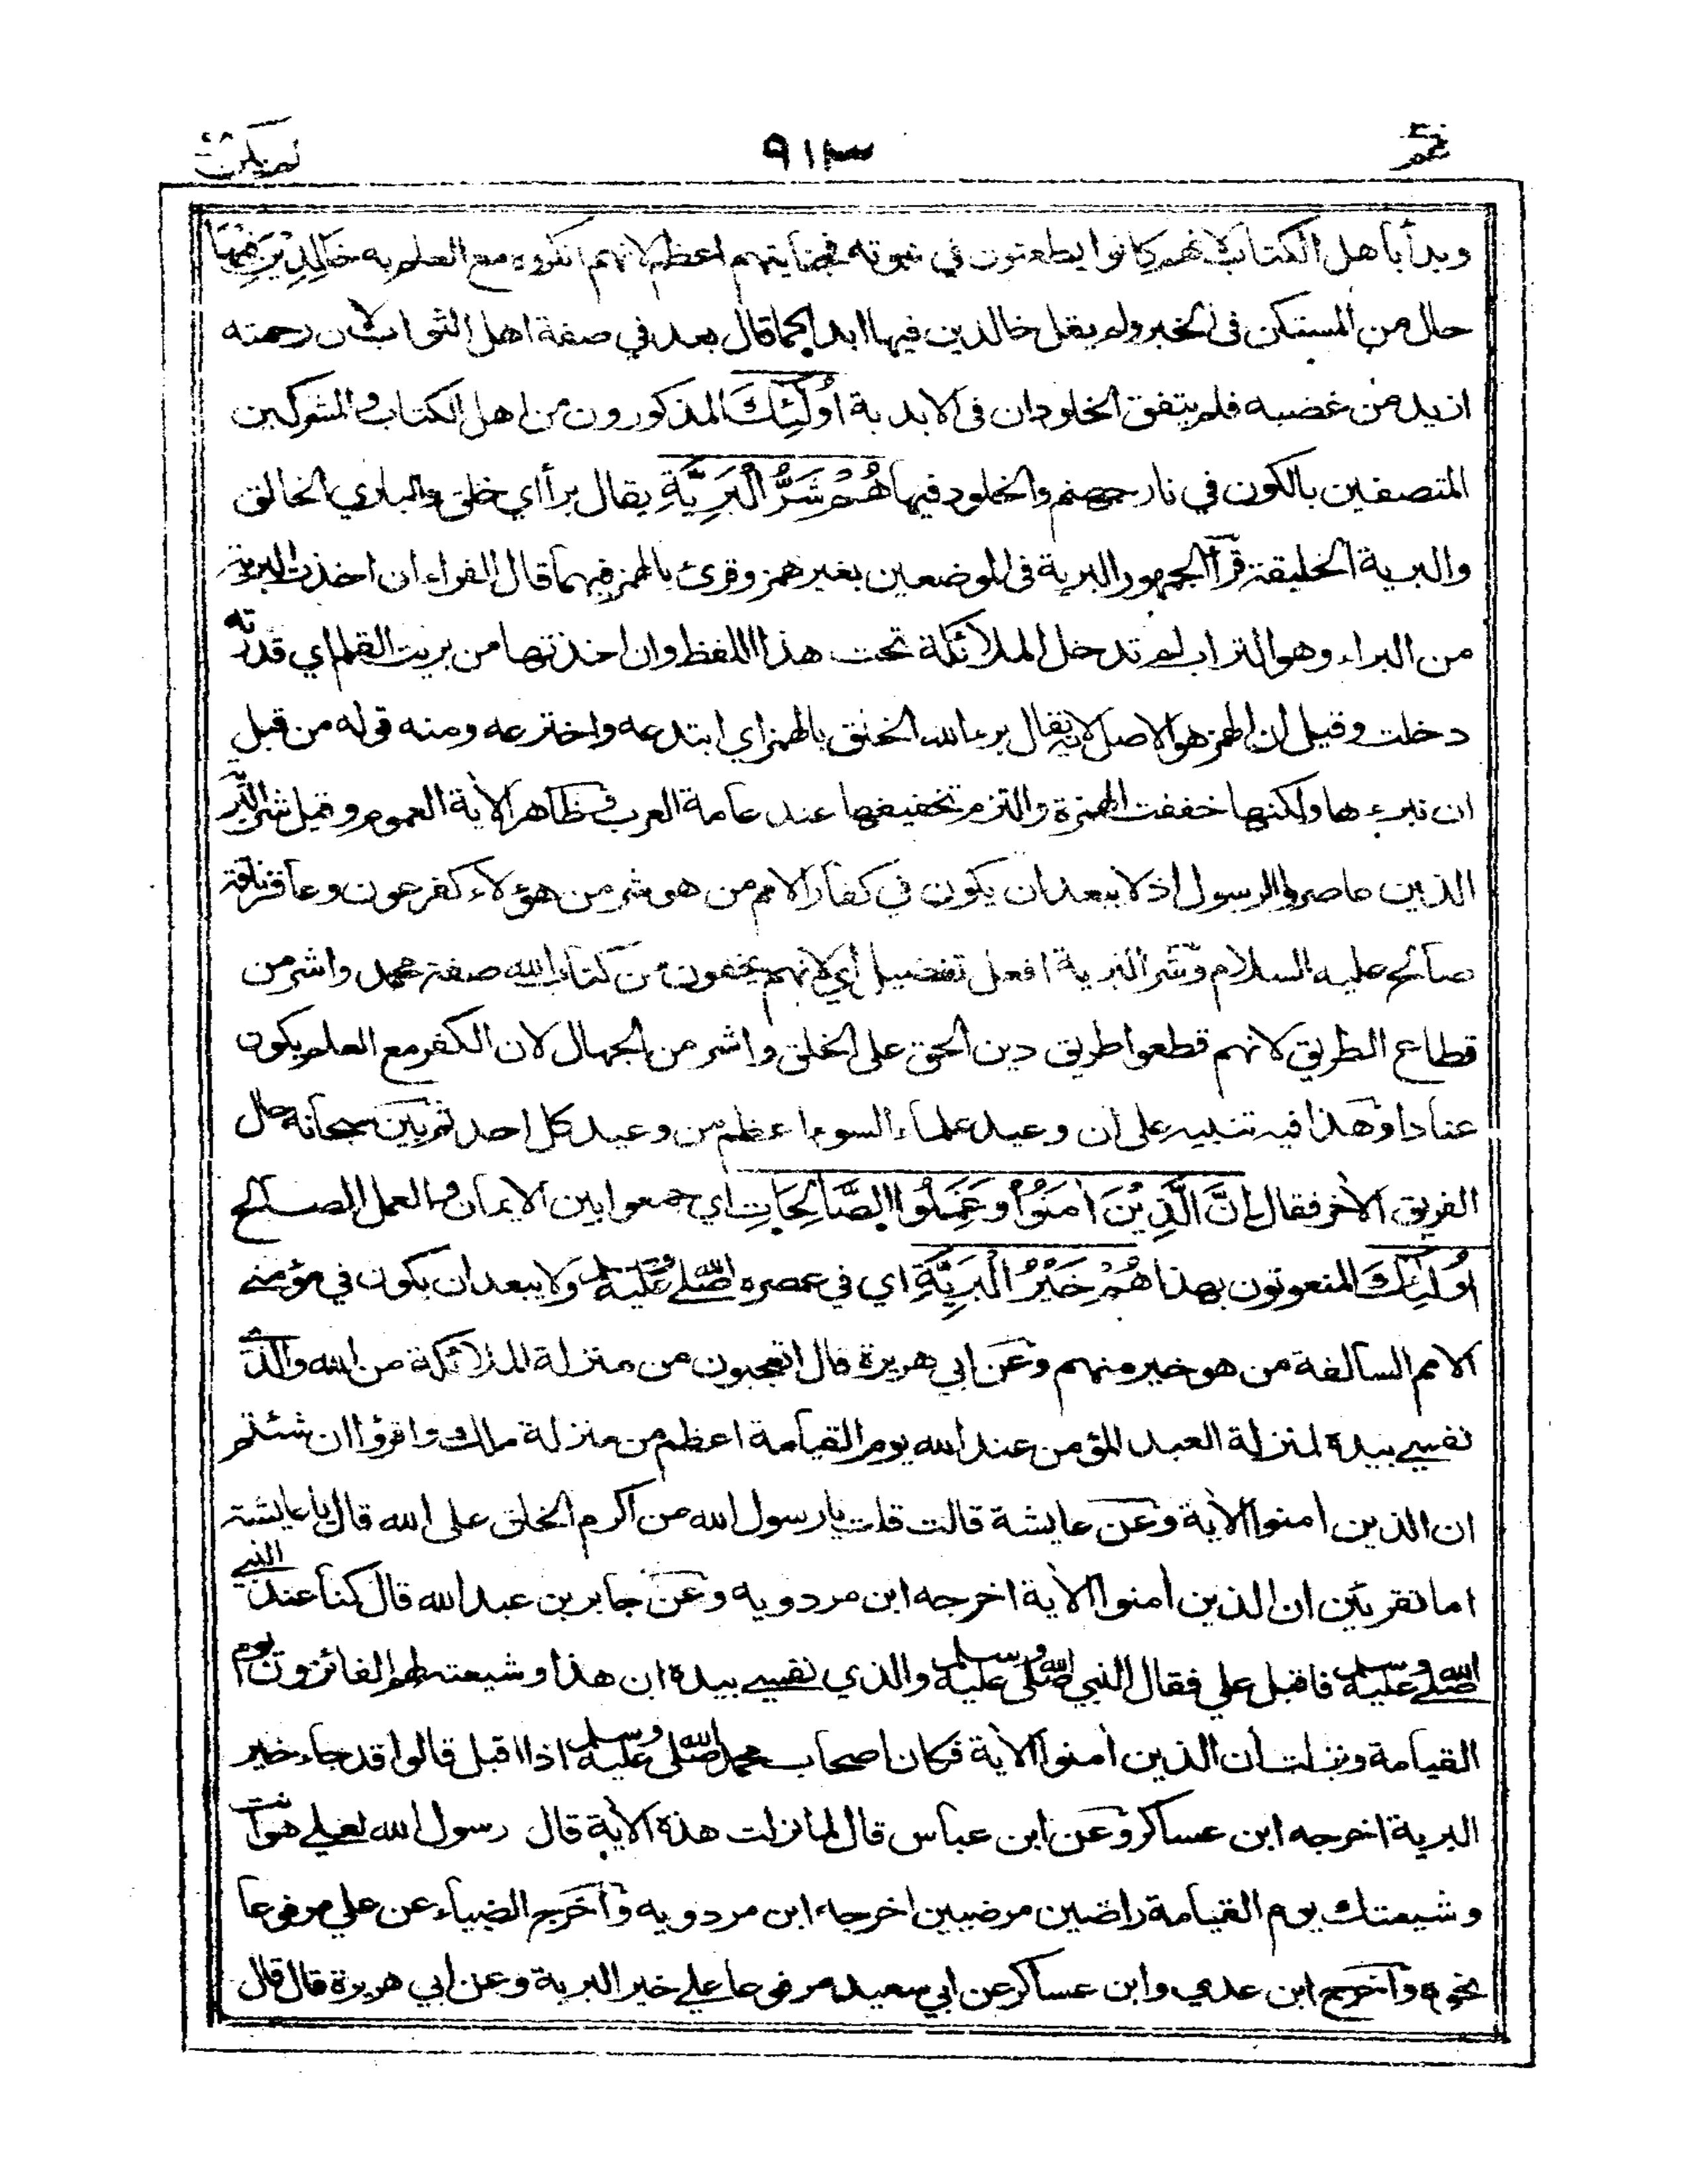 عم ٩١٣ لم يكن
وبدأ بأهل الكتاب لانهم كانوا يطعنون في نبوته فجنايتهم اعظم لانهم انكروه مع العلم به خَالِدِيْنَ فِيْهَا
حال من المستكن فى الخبر ولم يقل خالدين فيها ابدا كما قال بعد في صفة اهل الثواب لان رحمته
ازيد من غضبه فلم يتفق الخلودان فى الابدية أُولٰئِكَ المذكورون من اهل الكتاب والمشركين
المتصفين بالكون في نار جهنم والخلود فيها هُمْ شَرُّ الْبَرِيَّةِ يقال برأ أي خلق والباري الخالق
والبرية الخليقة قرأ الجمهور البرية فى الموضعين بغير همز وقرئ بالهمز فيهما قال الفراء ان اخذت البرية
من البراء وهو التراب لم تدخل الملائكة تحت هذا اللفظ وان اخذتها من بريت القلم اي قدرته
دخلت وقيل ان الهمز هو الاصل لانه يقال برء الله الخلق بالهمز اي ابتدعه واخترعه ومنه قوله من قبل
ان نبرءها ولكنها خففت الهمزة والتزم تخفيفها عند عامة العرب وظاهر الآية العموم وقيل شر البر
الذين عاصروا الرسول اذ لا يبعد ان يكون في كفار الامم من هو شر من هؤلاء كفرعون وعاقر ناقة
صالح عليه السلام وشر البرية افعل تفضيل أي لانهم يخفون من كتاب الله صفة محمد واشر من
قطاع الطريق لانهم قطعوا طريق دين الحق على الخلق واشر من الجهال لان الكفر مع العلم يكون
عنادا وهذا فيه تنبيه على ان وعيد علماء السوء اعظم من وعيد كل احد ثم بين سبحانه حال
الفريق الآخر فقال إِنَّ الَّذِيْنَ اٰمَنُوْا وَعَمِلُوا الصَّالِحَاتِ اي جمعوا بين الايمان والعمل الصالح
اُولٰئِكَ المنعوتون بهذا هُمْ خَيْرُ الْبَرِيَّةِ اي في عصره صلى الله عليه وسلم ولا يبعد ان يكون في مؤمني
الامم السالفة من هو خير منهم وعن ابي هريرة قال اتعجبون من منزلة الملائكة من الله والذي
نفسي بيده لمنزلة العبد المؤمن عند الله يوم القيامة اعظم من منزلة ملك واقرؤا ان شئتم
ان الذين اٰمنوا الآية وعن عايشة قالت قلت يا رسول الله من اكرم الخلق على الله قال يا عايشة
اما تقرئين ان الذين اٰمنوا الآية اخرجه ابن مردويه وعن جابر بن عبد الله قال كنا عند النبي
صلى الله عليه وسلم فاقبل علي فقال النبي صلى الله عليه وسلم والذي نفسي بيده ان هذا وشيعته لهم الفائزون يوم
القيامة ونزلت ان الذين اٰمنوا الآية فكان اصحاب محمد صلى الله عليه وسلم اذا اقبل قالوا قد جاء خير
البرية اخرجه ابن عساكر وعن ابن عباس قال لما نزلت هذه الآية قال رسول الله لعلي هو انت
وشيعتك يوم القيامة راضين مرضيين اخرجه ابن مردويه وأخرج الضياء عن علي مرفوعا
نحوه وأخرج ابن عدي وابن عساكر عن ابي سعيد مرفوعا علي خير البرية وعن ابي هريرة قال قال